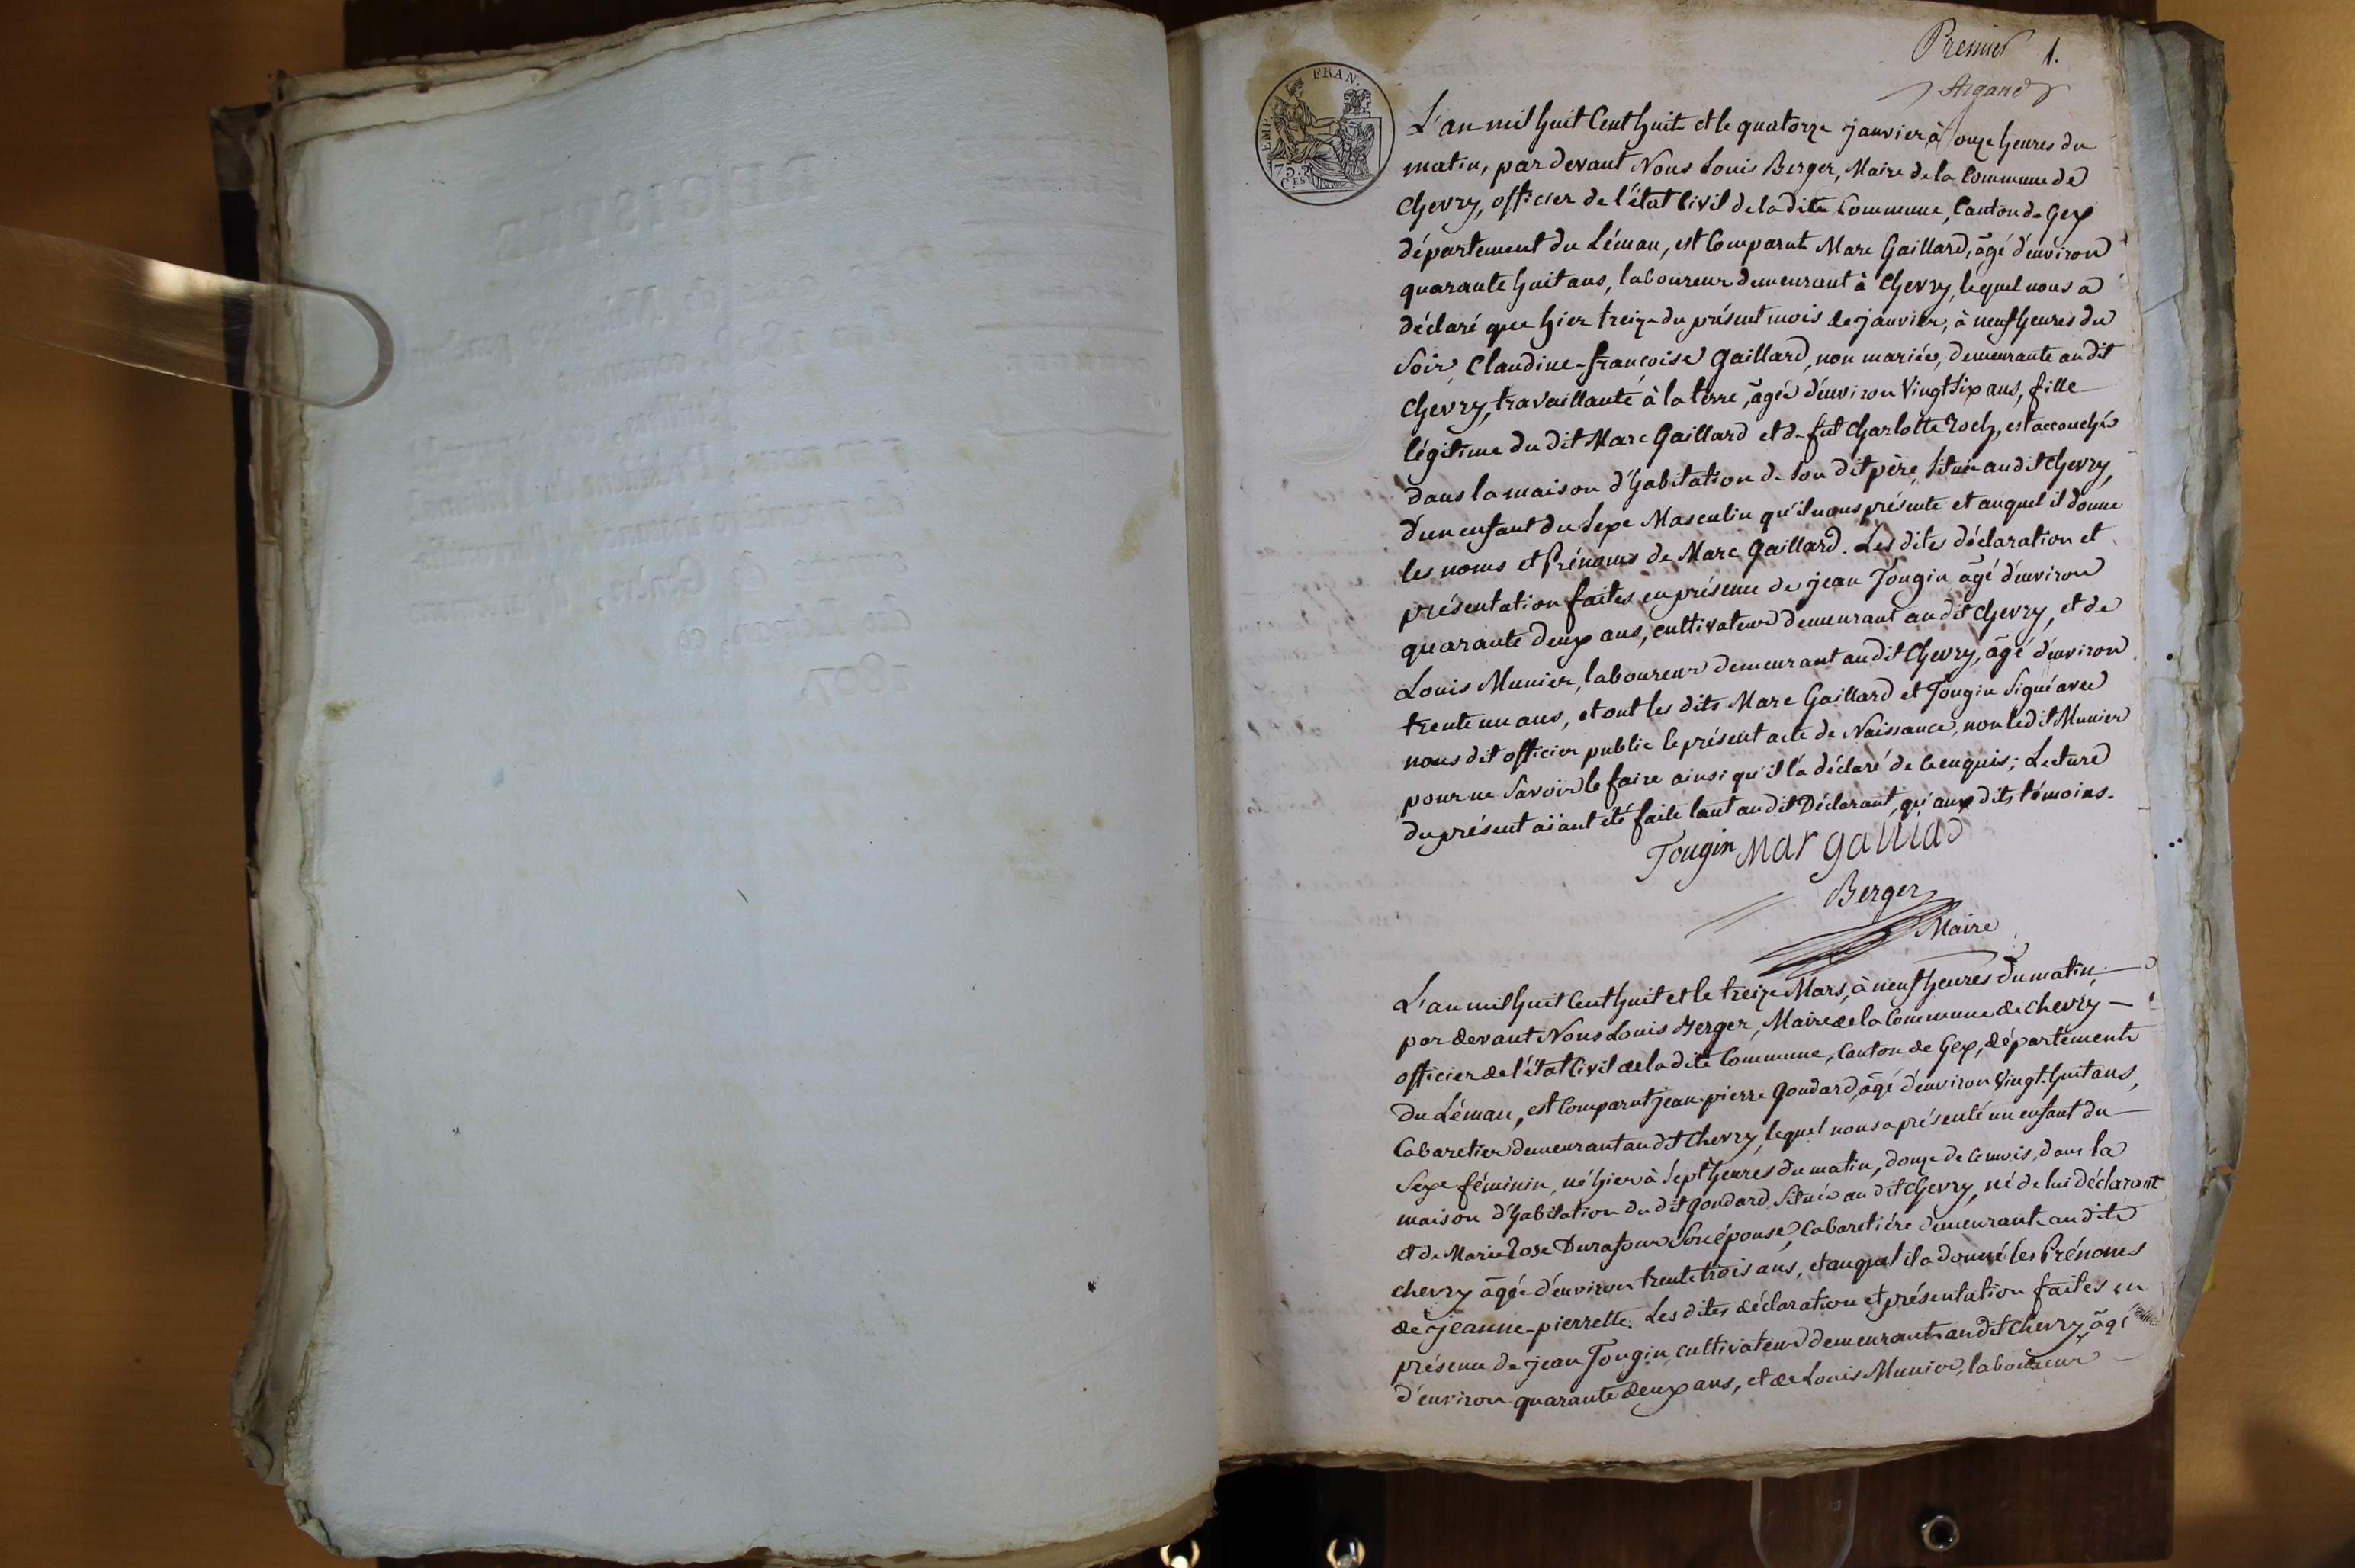 Premier 1.
Argand
EMP. FRAN.
75.
CES
L'an mil huit Cent huit et le quatorze janvier à onze heures du
matin, par devant Nous Louis Berger, Maire de la Commune de
Chevry, officier de l'état Civil de la dite Commune, Canton de Gex
département du Léman, est Comparut Marc Gaillard, âgé d'environ
quarante huit ans, laboureur demeurant à Chevry, lequel nous a
déclaré que hier treize du présent mois de janvier, à neuf heures du
Soir Claudine-françoise Gaillard, non mariée, demeurante au dit
Chevry, travaillante à la terre, âgée d'environ Vingt Six ans, fille
légitime du dit Marc Gaillard et de fut Charlotte Roch, est accouchée
dans la maison d'habitation de Son dit père, Située au dit Chevry,
d'un enfant du Sexe Masculin qu'il nous présente et auquel il donne
les noms et Prénoms de Marc Gaillard. Les dites déclaration et
présentation faites en présence de jean Tougin âgé d'environ
quarante deux ans, cultivateur demeurant au dit Chevry, et de
Louis Munier, laboureur demeurant au dit Chevry, âgé d'environ
trente un ans, et ont les dits Marc Gaillard et Tougin Signé avec
nous dit officier public le présent acte de Naissance, non le dit Munier
pour ne Savoir le faire ainsi qu'il l'a déclaré de ce enquis; Lecture
du présent aïant été faite tant au dit Déclarant, qu'aux dits témoins.
Tougin Mar gailiad
Berger
Maire
L'an mil huit Cent huit et le treize Mars, à neuf heures du matin,
par devant Nous Louis Berger, Maire de la Commune de Chevry
officier de l'état Civil de la dite Commune, Canton de Gex, département
Du Léman, est Comparut jean-pierre Goudard, âgé d'environ Vingt-huit ans,
Cabaretier demeurant au dit Chevry, lequel nous a présenté un enfant du
Sexe féminin, né hier à Sept heures du matin, douze de ce mois, dans la
maison d'habitation du dit Goudard, Située au dit Chevry, né de lui déclarant
et de Marie Rose Durafour Son épouse, Cabaretière demeurante au dite
chevry âgée d'environ trente trois ans, et auquel il a donné les Prénoms
de jeanne-pierrette. Les dites déclaration et présentation faites en
présence de jean Tougin cultivateur demeurant au dit Chevry, âgé
d'environ quarante deux ans, et de Louis Munier, laboureur